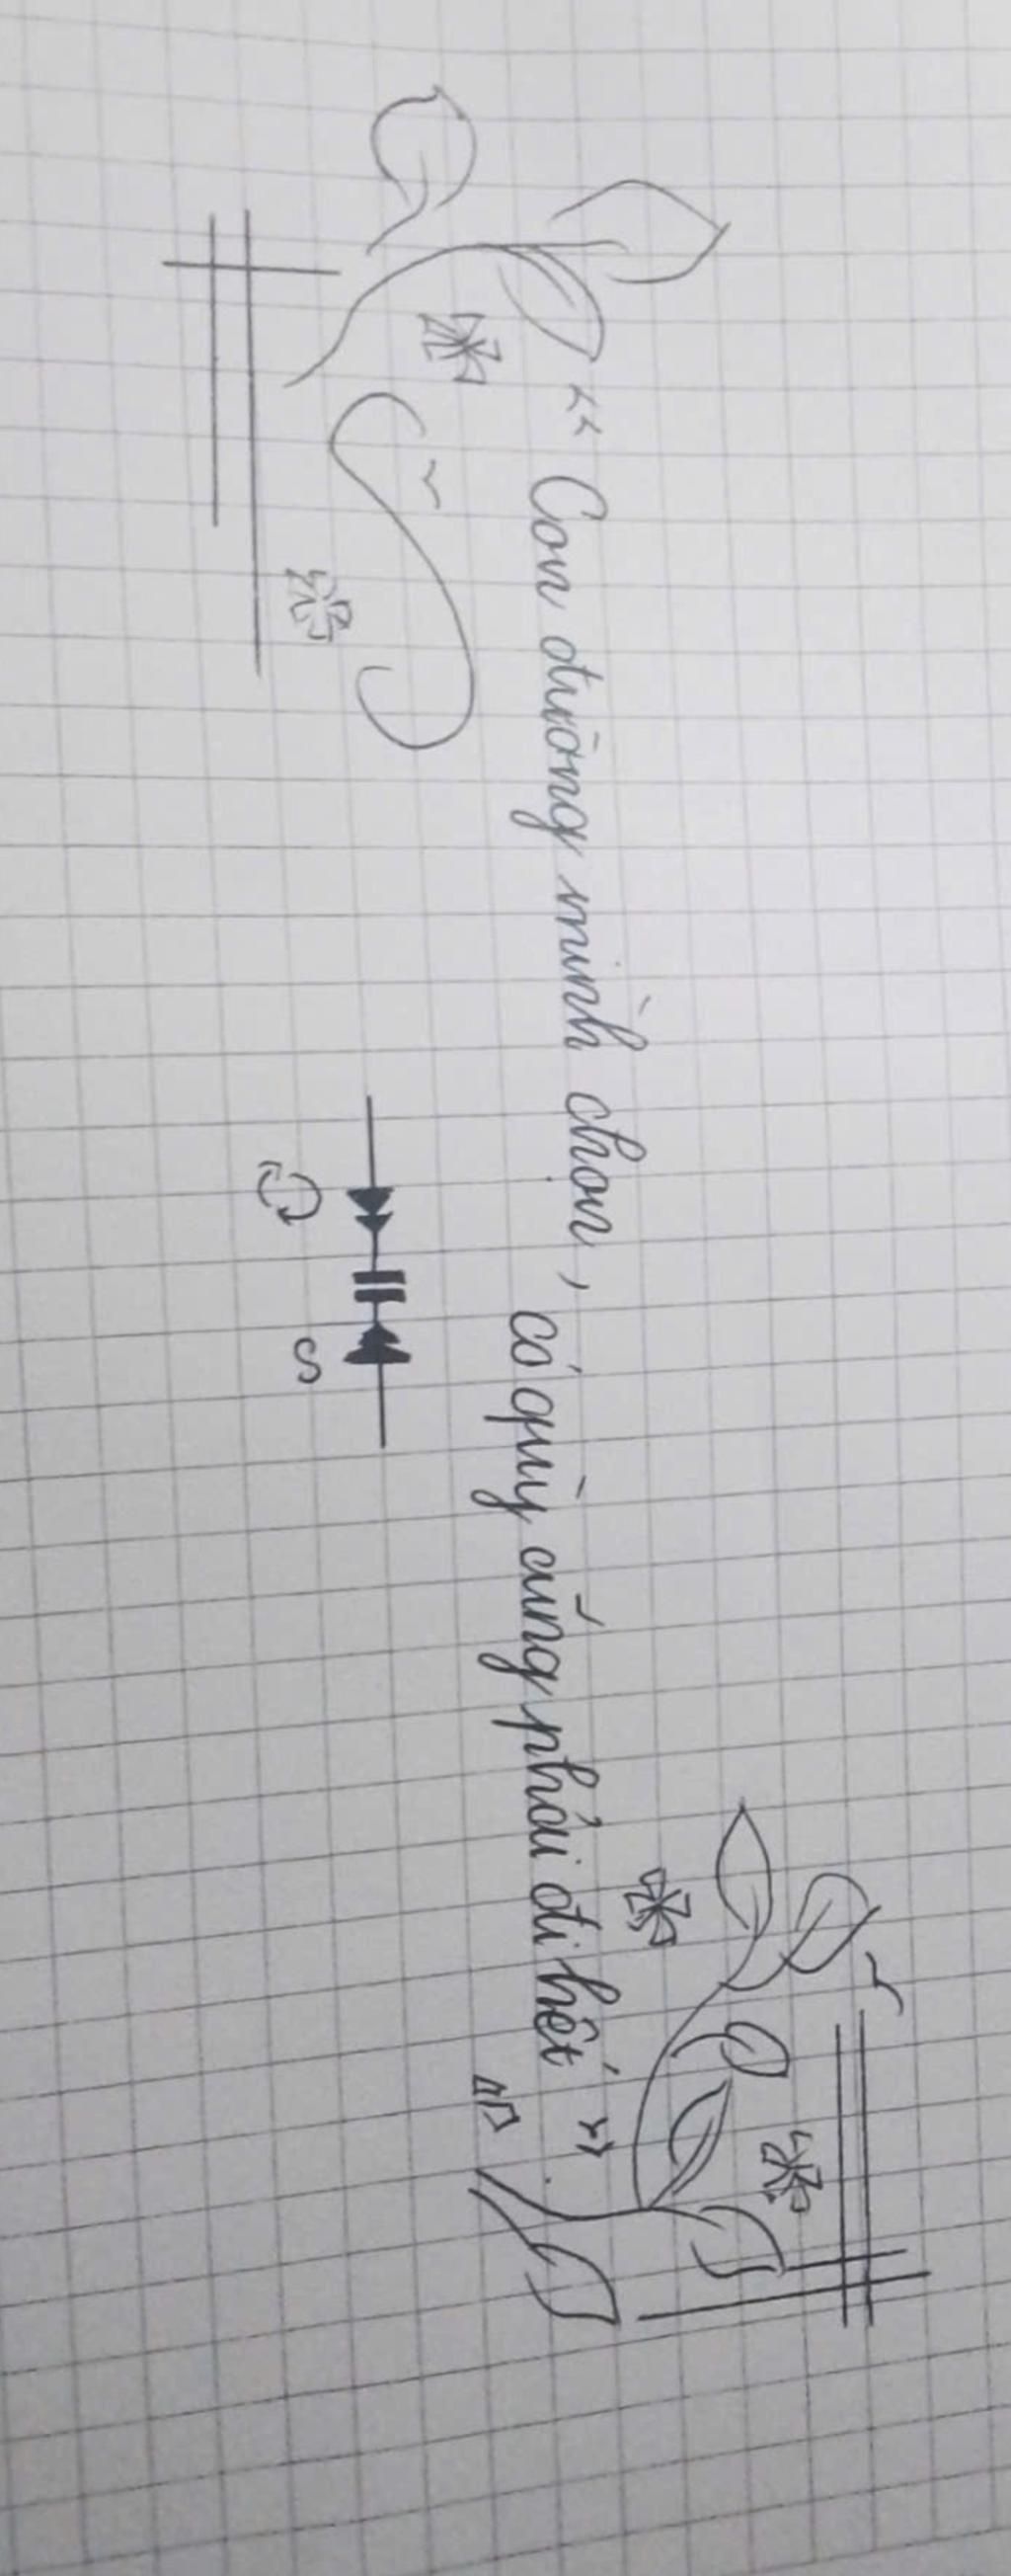 “ Con đường mình chọn,
có quỳ cũng phải đi hết ”.